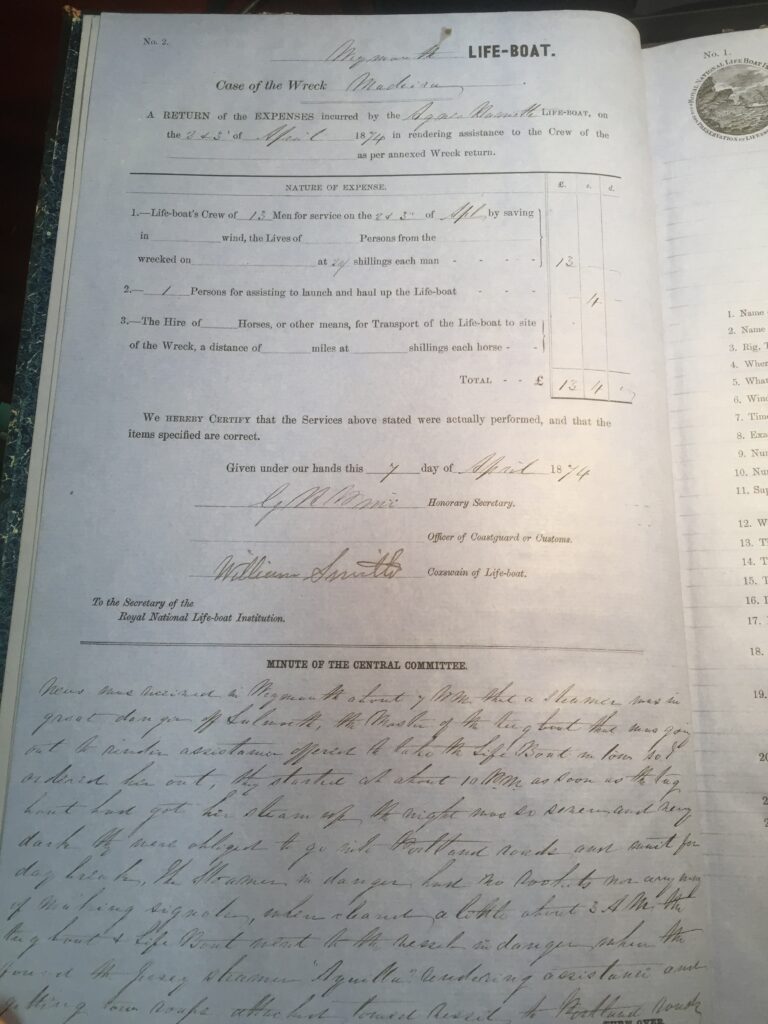 No. 2.
Weymouth LIFE-BOAT.
Case of the Wreck Madeira
A RETURN of the EXPENSES incurred by the Agnes LIFE-BOAT, on
the 2 & 3 of April 1874 in rendering assistance to the Crew of the
as per annexed Wreck return.
NATURE OF EXPENSE. £. s. d.
1.—Life-boat's Crew of 13 Men for service on the 2 & 3 of Apl by saving
in wind, the Lives of Persons from the
wrecked on at shillings each man - - - - - 13
2.— 1 Persons for assisting to launch and haul up the Life-boat - - - 4
3.—The Hire of Horses, or other means, for Transport of the Life-boat to site
of the Wreck, a distance of miles at shillings each horse - -
TOTAL - - £ 13 4
We HEREBY CERTIFY that the Services above stated were actually performed, and that the
items specified are correct.
Given under our hands this 7 day of April 1874
Honorary Secretary.
Officer of Coastguard or Customs.
William Smith Coxswain of Life-boat.
To the Secretary of the
Royal National Life-boat Institution.
MINUTE OF THE CENTRAL COMMITTEE.
News was received in Weymouth about 7 PM that a steamer was in
great danger off Lulworth, the Master of the tug boat that was going
out to render assistance offered to take the Life Boat in tow so I
ordered her out, they started at about 10 PM as soon as the tug
boat had got her steam up the night was so and very
dark they were obliged to go into Portland roads and wait for
day break, The Steamer in danger had no rockets nor any means
of making signals, when cleared a little about 3 AM the
tug boat & Life Boat went to the vessel in danger when the
found the Jersey steamer "Aquilla" rendering assistance and
getting tow ropes attached towed vessel to Portland roads
TURN OVER
No. 1.
ROYAL NATIONAL LIFE BOAT
1. Name
2. Name
3. Rig, T
4. Wher
5. What
6. Wind
7. Time
8. Exa
9. Nu
10. Nu
11. Su
12. W
13. T
14. T
15. T
16. I
17.
18.
19.